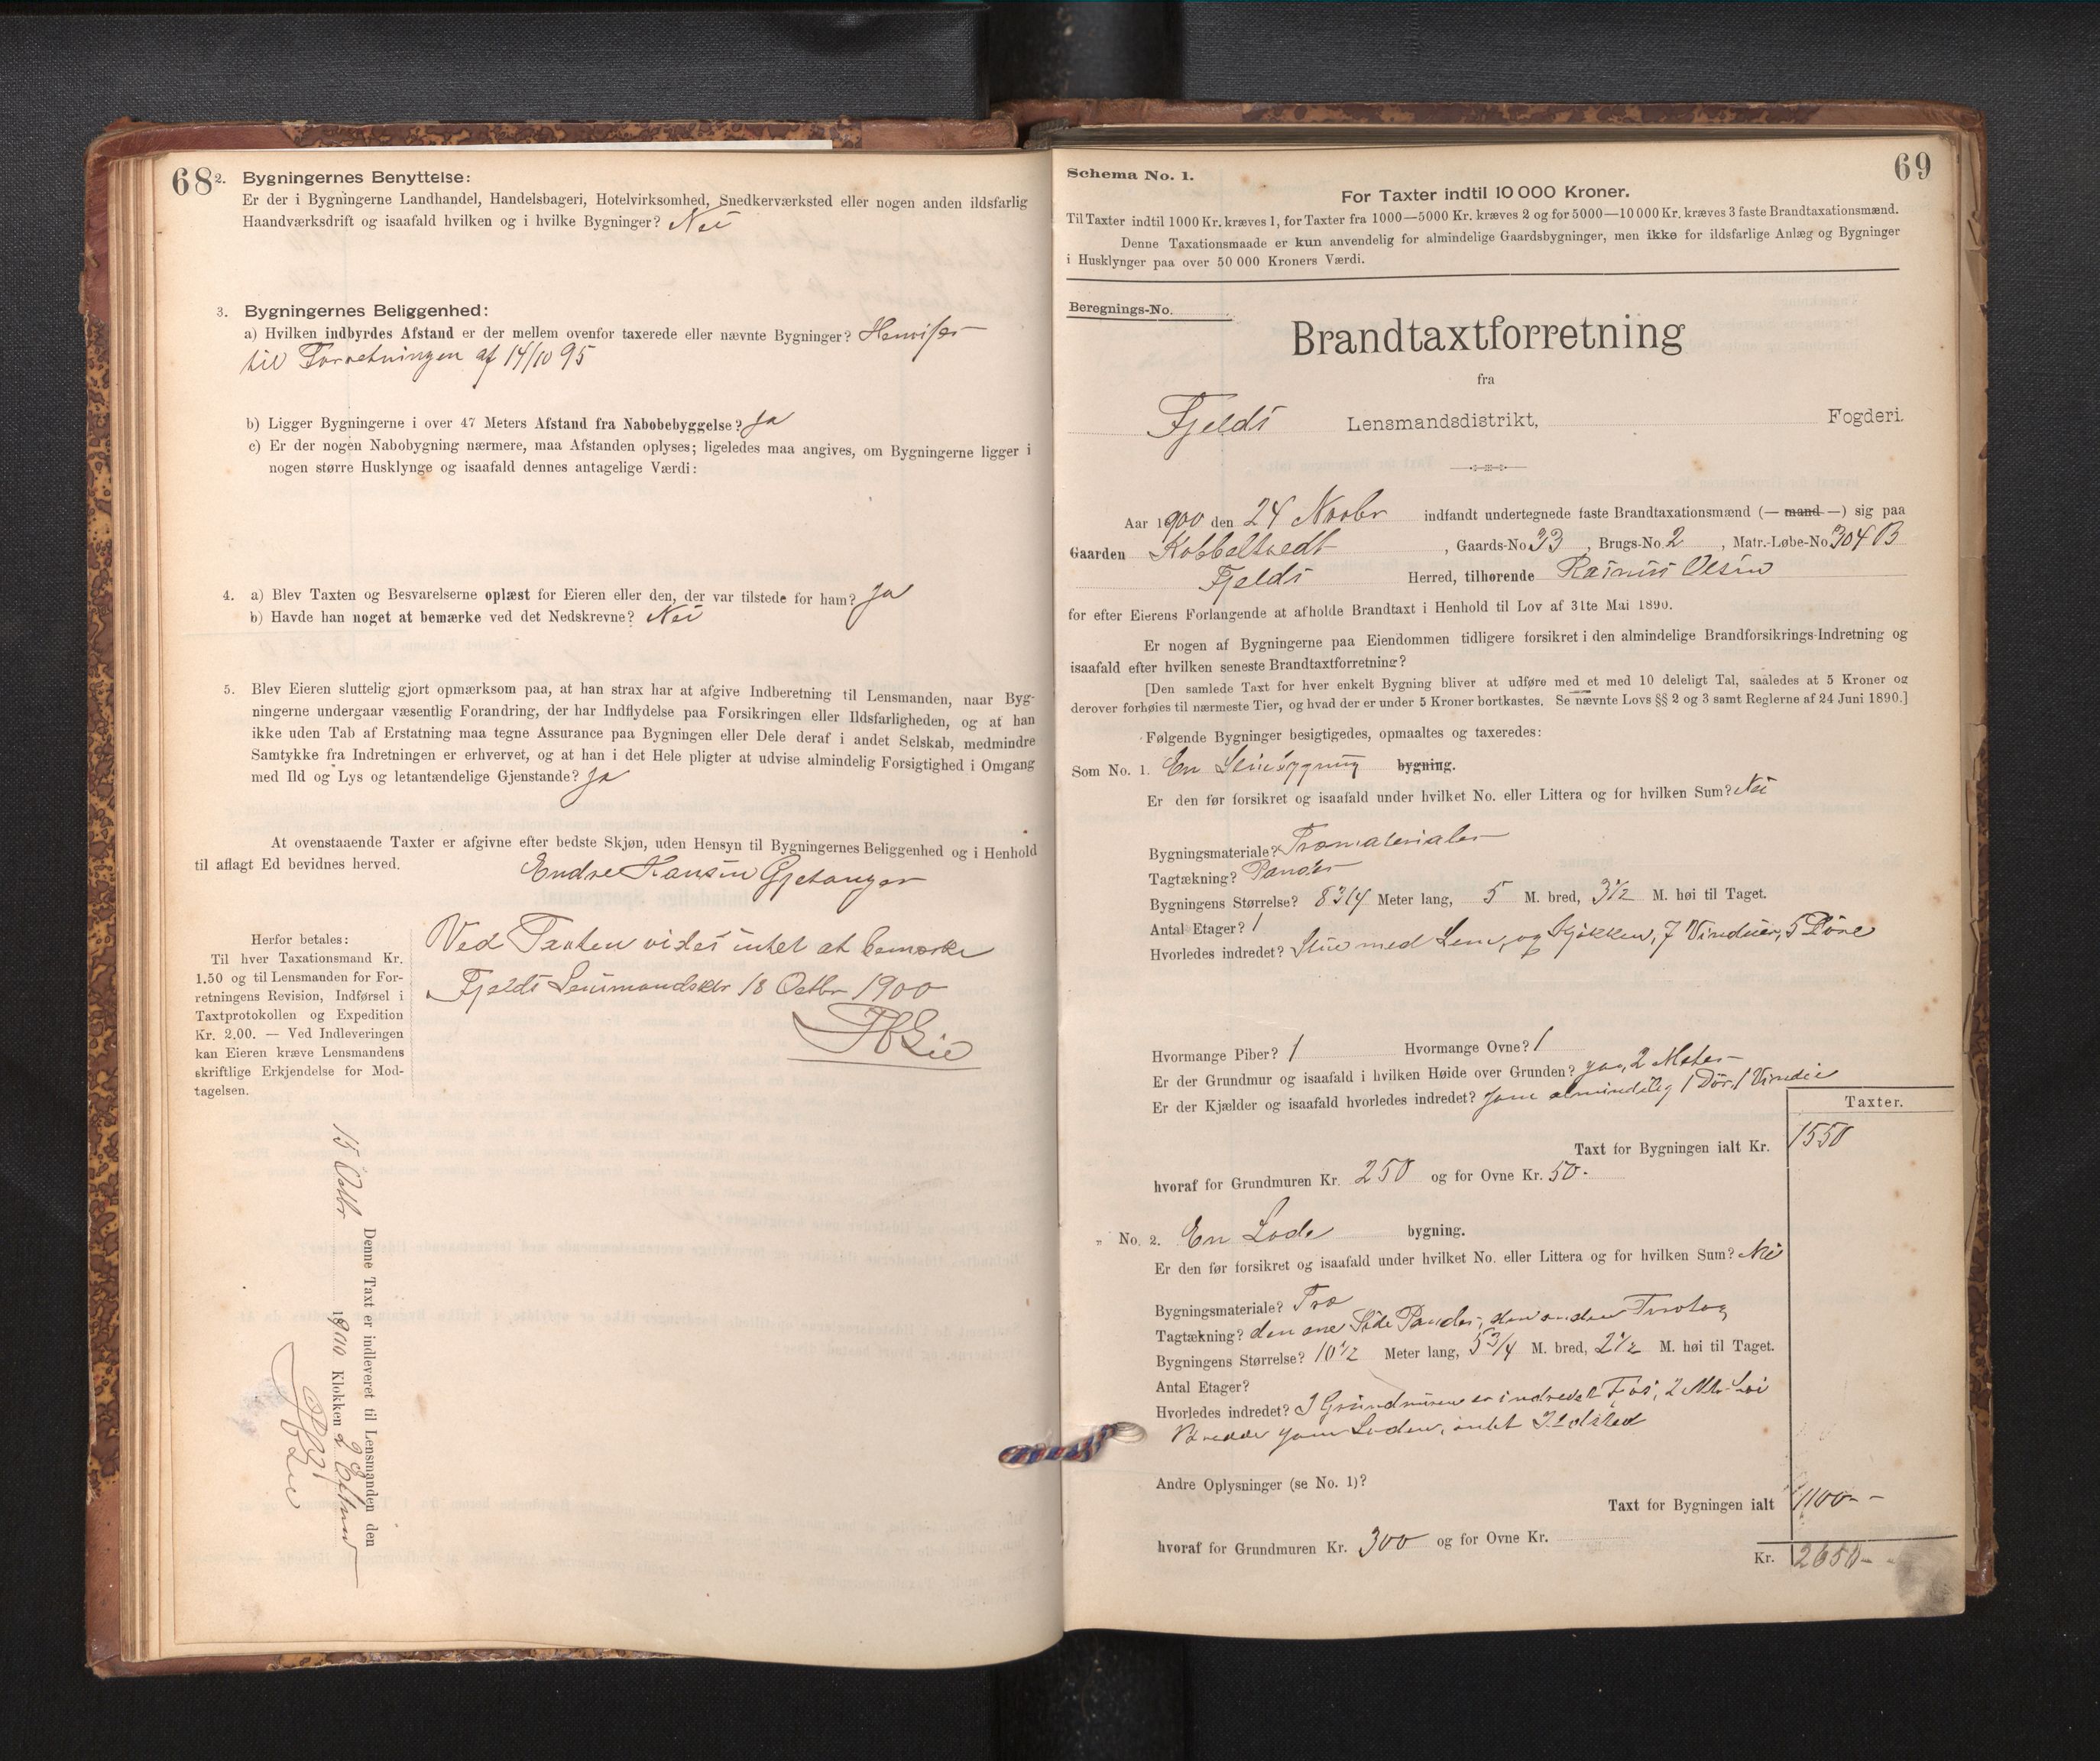 68
2. Bygningernes Benyttelse:
Er der i Bygningerne Landhandel, Handelsbageri, Hotelvirksomhed, Snedkerværksted eller nogen anden ildsfarlig
Haandværksdrift og isaafald hvilken og i hvilke Bygninger? Nei
3. Bygningernes Beliggenhed:
a) Hvilken indbyrdes Afstand er der mellem ovenfor taxerede eller nævnte Bygninger? Henvises
til Forretningen af 14/10 95
b) Ligger Bygningerne i over 47 Meters Afstand fra Nabobebyggelse? Ja
c) Er der nogen Nabobygning nærmere, maa Afstanden oplyses; ligeledes maa angives, om Bygningerne ligger i
nogen større Husklynge og isaafald dennes antagelige Værdi:
4. a) Blev Taxten og Besvarelserne oplæst for Eieren eller den, der var tilstede for ham? Ja
b) Havde han noget at bemærke ved det Nedskrevne? Nei
5. Blev Eieren sluttelig gjort opmærksom paa, at han strax har at afgive Indberetning til Lensmanden, naar Byg-
ningerne undergaar væsentlig Forandring, der har Indflydelse paa Forsikringen eller Ildsfarligheden, og at han
ikke uden Tab af Erstatning maa tegne Assurance paa Bygningen eller Dele deraf i andet Selskab, medmindre
Samtykke fra Indretningen er erhvervet, og at han i det Hele pligter at udvise almindelig Forsigtighed i Omgang
med Ild og Lys og letantændelige Gjenstande? Ja
At ovenstaaende Taxter er afgivne efter bedste Skjøn, uden Hensyn til Bygningernes Beliggenhed og i Henhold
til aflagt Ed bevidnes herved.
Endre Hansen Gjetanger
Herfor betales:
Til hver Taxationsmand Kr.
1.50 og til Lensmanden for For-
retningens Revision, Indførsel i
Taxtprotokollen og Expedition
Kr. 2.00. — Ved Indleveringen
kan Eieren kræve Lensmandens
skriftlige Erkjendelse for Mod-
tagelsen.
Ved Taxten vides intet at bemærke
Fjelds Lensmandsktr 18 Octbr 1900
Lie
Denne Taxt er indleveret til Lensmanden den
15 Octbr 1900 Klokken 2 Efterm
Lie
69
Schema No. 1.
For Taxter indtil 10 000 Kroner.
Til Taxter indtil 1000 Kr. kræves 1, for Taxter fra 1000—5000 Kr. kræves 2 og for 5000—10 000 Kr. kræves 3 faste Brandtaxationsmænd.
Denne Taxationsmaade er kun anvendelig for almindelige Gaardsbygninger, men ikke for ildsfarlige Anlæg og Bygninger
i Husklynger paa over 50 000 Kroners Værdi.
Beregnings-No.
Brandtaxtforretning
fra
Fjelds Lensmandsdistrikt, Fogderi.
Aar 1900 den 24 Novbr indfandt undertegnede faste Brandtaxationsmænd (— mand —) sig paa
Gaarden Kobbeltvedt, Gaards-No 33, Brugs-No. 2, Matr.-Løbe-No 304 B
Fjelds Herred, tilhørende Rasmus Olsen
for efter Eierens Forlangende at afholde Brandtaxt i Henhold til Lov af 31te Mai 1890.
Er nogen af Bygningerne paa Eiendommen tidligere forsikret i den almindelige Brandforsikrings-Indretning og
isaafald efter hvilken seneste Brandtaxtforretning?
[Den samlede Taxt for hver enkelt Bygning bliver at udføre med et med 10 deleligt Tal, saaledes at 5 Kroner og
derover forhøies til nærmeste Tier, og hvad der er under 5 Kroner bortkastes. Se nævnte Lovs §§ 2 og 3 samt Reglerne af 24 Juni 1890.]
Følgende Bygninger besigtigedes, opmaaltes og taxeredes:
Som No. 1. En Stuebygning bygning.
Er den før forsikret og isaafald under hvilket No. eller Littera og for hvilken Sum? Nei
Bygningsmateriale? Træmaterialer
Tagtækning? Pander
Bygningens Størrelse? 8 3/4 Meter lang, 5 M. bred, 3 1/2 M. høi til Taget.
Antal Etager? 1
Hvorledes indredet? Stue med Lem, og Kjøkken, 7 Vinduer, 5 Døre
Hvormange Piber? 1 Hvormange Ovne? 1
Er der Grundmur og isaafald i hvilken Høide over Grunden? Ja, 2 Meter
Er der Kjælder og isaafald hvorledes indredet? Som almindelig 1 Dør, 1 Vindu
Taxter.
Taxt for Bygningen ialt Kr. 1550
hvoraf for Grundmuren Kr. 250 og for Ovne Kr. 50.
„ No. 2. En Lade bygning.
Er den før forsikret og isaafald under hvilket No. eller Littera og for hvilken Sum? Nei
Bygningsmateriale? Træ
Tagtækning? den ene Side Pander, den anden Torvtag
Bygningens Størrelse? 10 1/2 Meter lang, 5 3/4 M. bred, 2 1/2 M. høi til Taget.
Antal Etager?
Hvorledes indredet? I Grundmuren er indredet Fjøs, 2 Mtr høi
Bredde som Laden, intet Ildsted
Andre Oplysninger (se No. 1)?
Taxt for Bygningen ialt 1100 - -
hvoraf for Grundmuren Kr. 300 og for Ovne Kr.
Kr. 2650 -